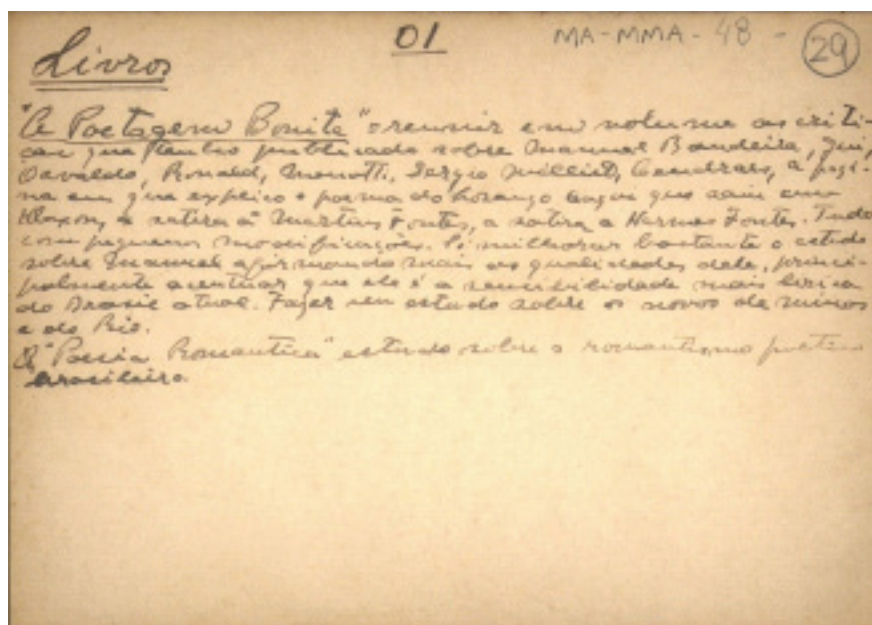 Livros
01
MA-MMA-48-
29
"A Poetagem Bonita" reunir em volume as criti-
cas que tenho publicado sobre Manuel Bandeira, Gui,
Osvaldo, Ronald, Menotti, Sergio Milliet, Cendrars, a pagi-
na em que explico o poema do losango caqui que saiu em
Klaxon, a satira á Martins Fontes, a satira a Hermes Fontes. Tudo
com pequenas modificações. Si milhorar bastante o estudo
sobre Manuel afirmando mais as qualidades dele, princi-
palmente acentuar que ele é a sensibilidade mais lirica
do Brasil atual. Fazer um estudo sobre os novos de Minas
e do Rio.
"Poesia Romantica" estudo sobre o romantismo poetico
brasileiro.